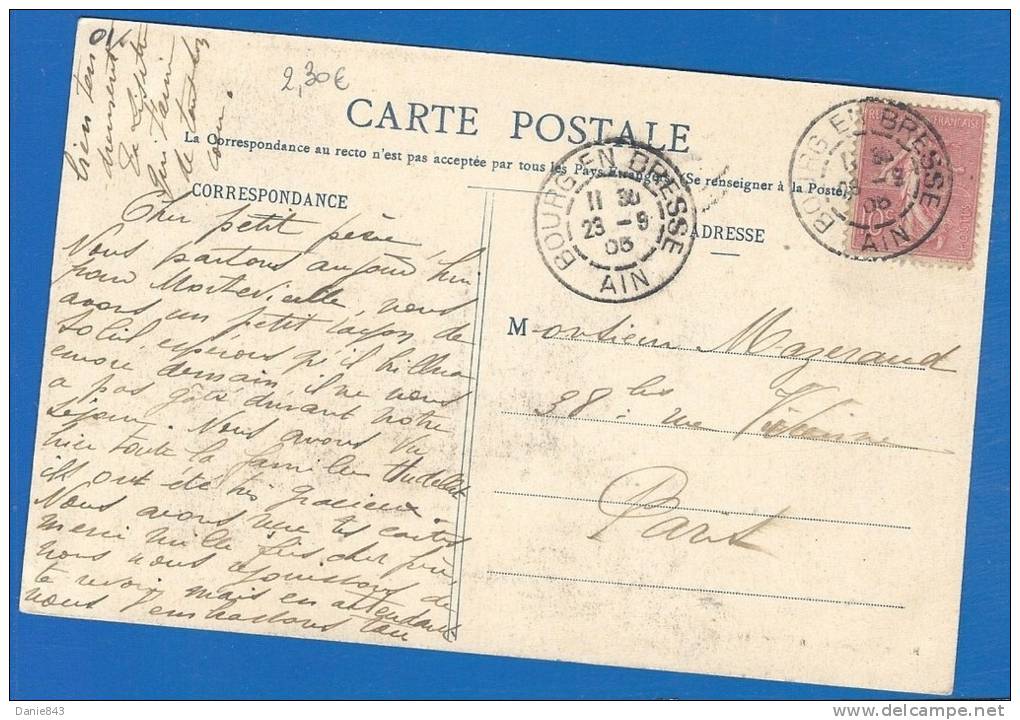 2,30€
CARTE POSTALE
La Correspondance au recto n'est pas acceptée par tous les Pays Etrangers (Se renseigner à la Poste)
CORRESPONDANCE
ADRESSE
BOURG EN BRESSE
11 30
23 - 9
05
AIN
BOURG EN BRESSE
AIN
Cher petit père
Nous partons aujourd'hui
pour nous
avons un petit rayon de
soleil, espérons qu'il brillera
encore demain, il ne nous
a pas gâté durant notre
séjour. Nous avons vu
hier toute la famille
ils ont été très gracieux.
Nous avons une tes cartes
merci mille fois cher père,
nous nous réjouissons de
te revoir, mais en attendant
nous t'embrassons
bien
Monsieur Mazeraud
38 bis rue Vivienne
Paris
Danie843
http://www.delcampe.net